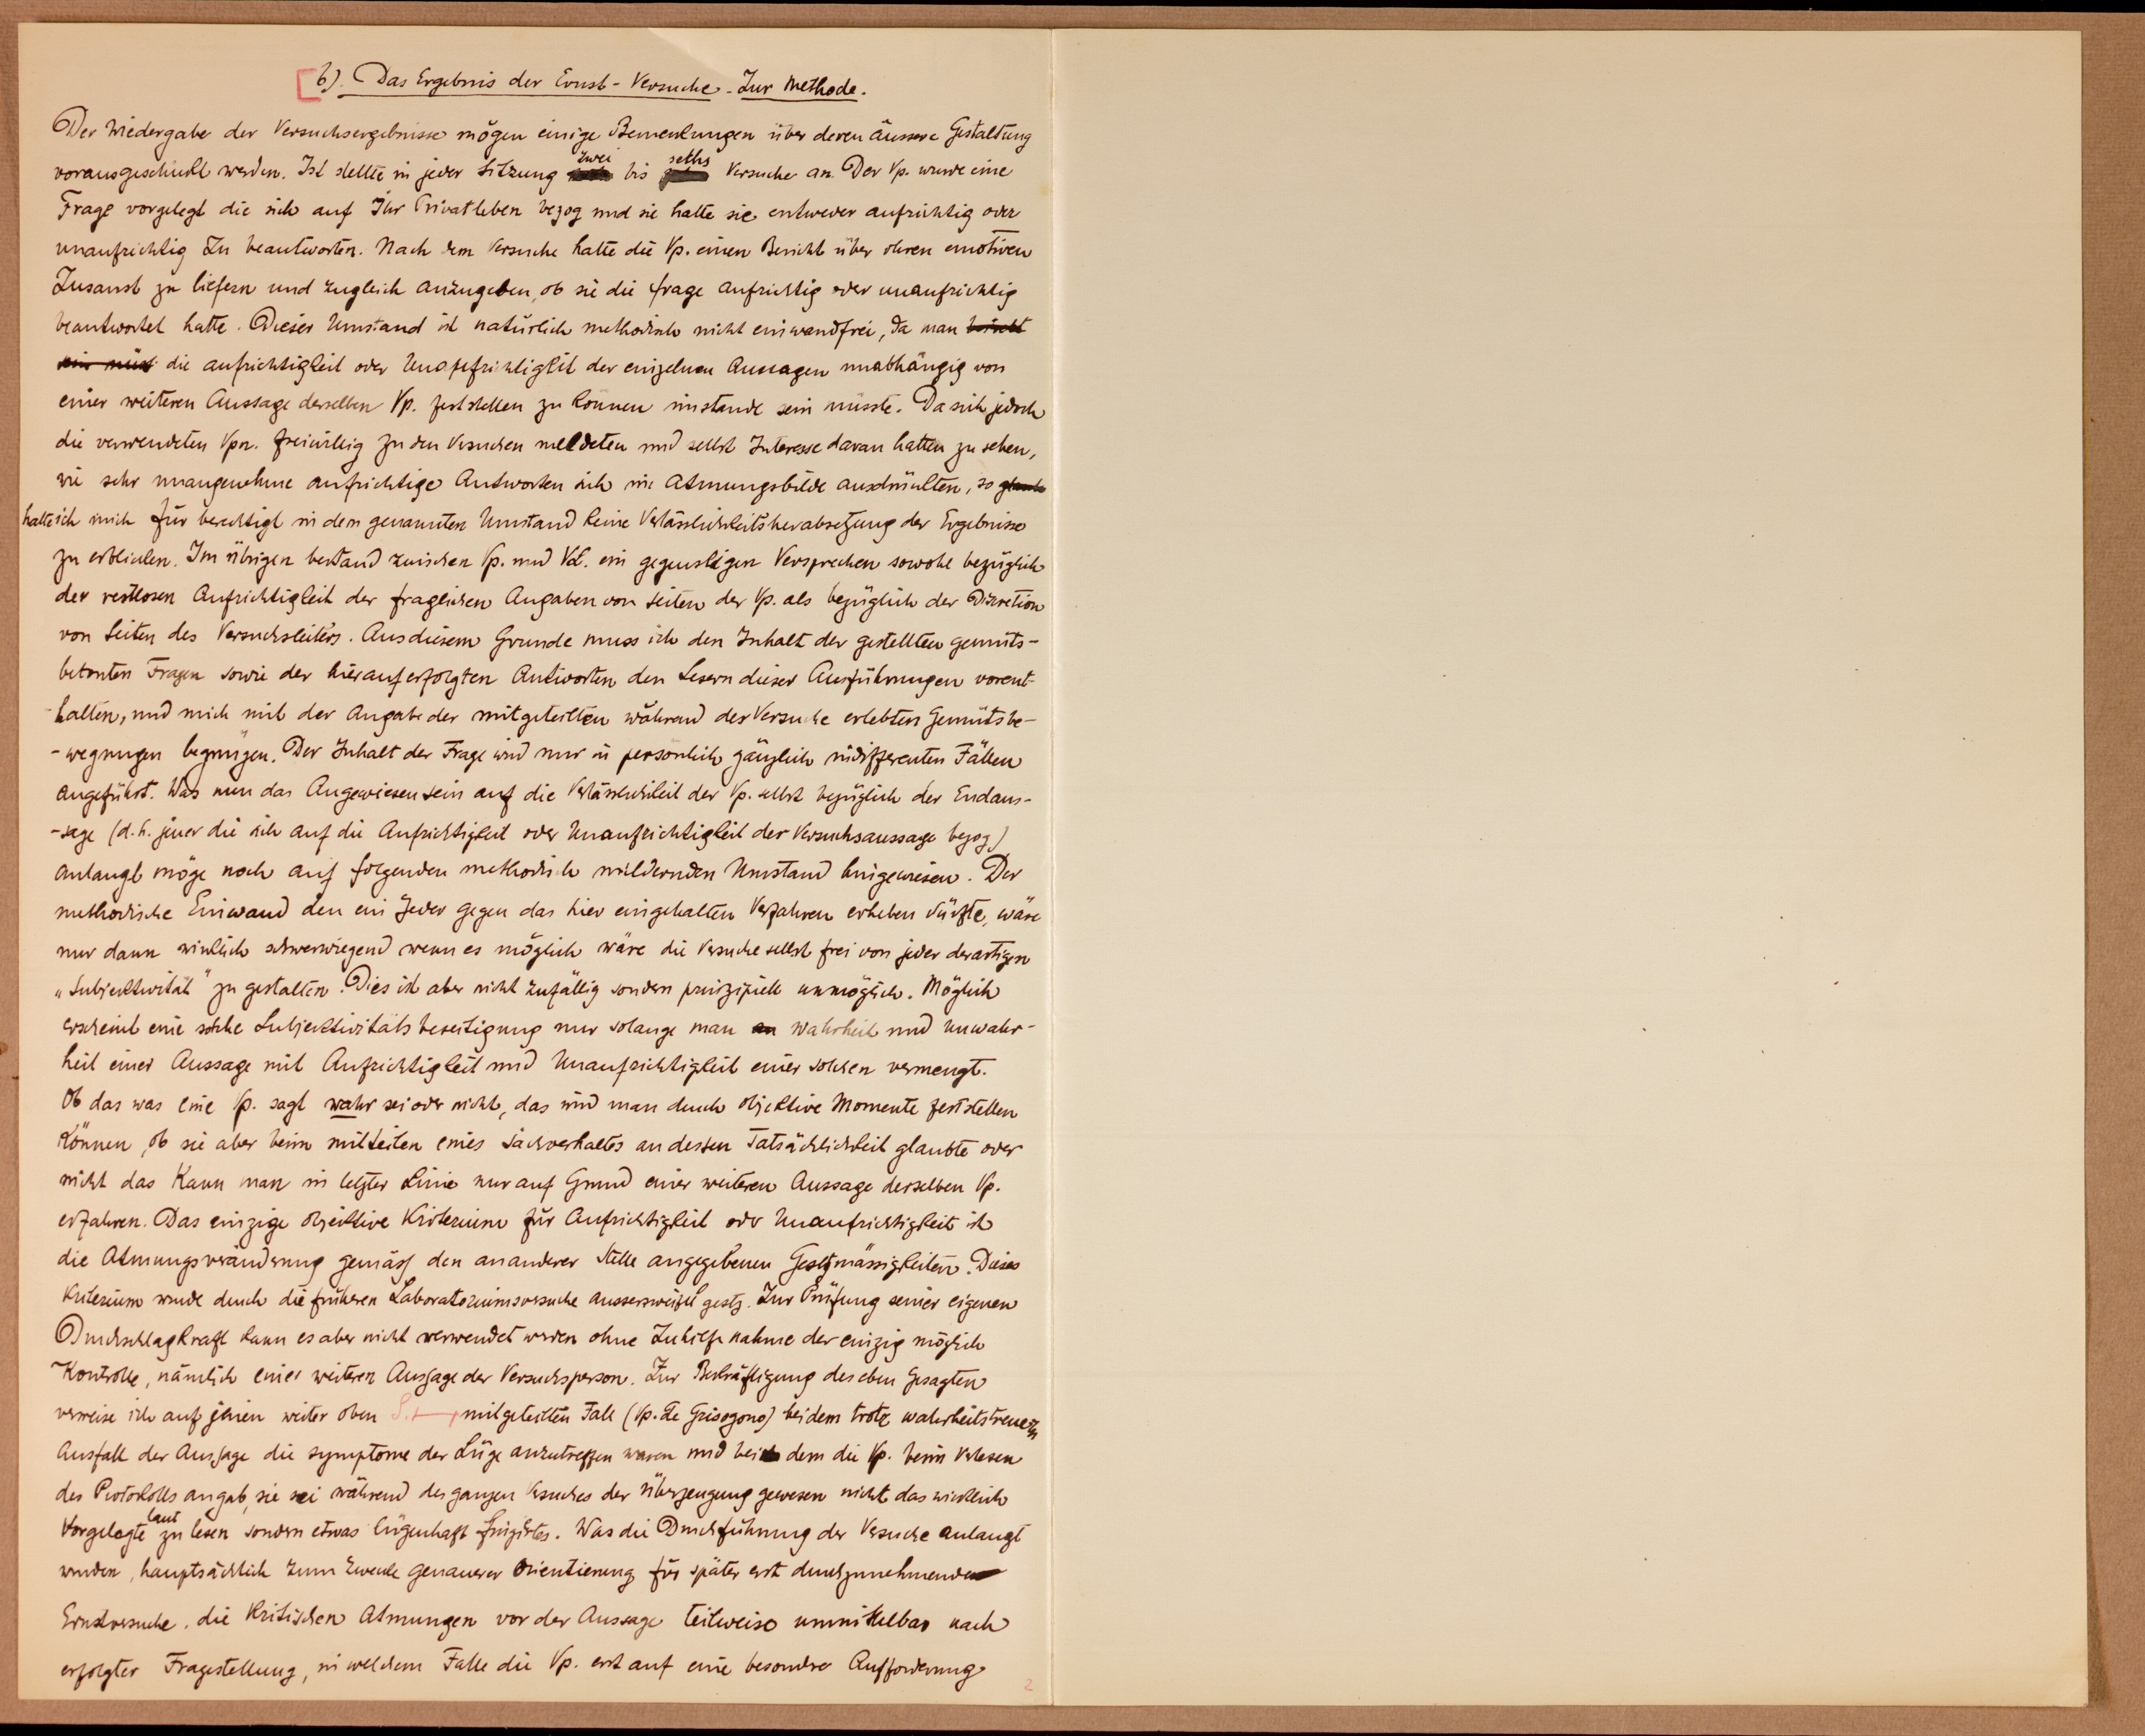 b). Das Ergebnis der Ernst-Versuche. Zur Methode.
Der Wiedergabe der Versuchsergebnisse mögen einige Bemerkungen über deren äussere Gestaltung
vorausgeschickt werden. Ich stellte in jeder Sitzung zwei bis sechs Versuche an. Der Vp. wurde eine
Frage vorgelegt die sich auf Ihr Privatleben bezog und sie hatte sie entweder aufrichtig oder
unaufrichtig zu beantworten. Nach dem Versuche hatte die Vp. einen Bericht über ihren emotiven
Zusand zu liefern und zugleich anzugeben, ob sie die Frage aufrichtig oder unaufrichtig
beantwortet hatte. Dieser Umstand ist natürlich methodisch nicht einwandfrei, da man
die Aufrichtigkeit oder Unaufrichtigkeit der einzelnen Aussagen unabhängig von
einer weiteren Aussage derselben Vp. feststellen zu können imstande sein müsste. Da sich jedoch
die verwendeten Vpn. freiwillig zu den Versuchen meldeten und selbst Interesse daran hatten zu sehen,
wie sehr unangenehme aufrichtige Antworten sich im Atmungsbilde ausdrückten, so
halte ich mich für berechtigt in dem genannten Umstand keine Verlässlichkeitsherabsetzung der Ergebnisse
zu erblicken. Im übrigen bestand zwischen Vp. und VL. ein gegenseitigen Versprechen sowohl bezüglich
der restlosen Aufrichtigkeit der fraglichen Angaben von seiten der Vp. als bezüglich der Discretion
von Seiten des Versuchsleiters. Aus diesem Grunde muss ich den Inhalt der gestellten gemüts-
betonten Fragen sowie der hierauf erfolgten Antworten den Lesern dieser Ausführungen vorent-
-halten, und mich mit der Angabe der mitgeteilten während der Versuche erlebten Gemütsbe-
-wegungen begnügen. Der Inhalt der Frage wird nur in persönlich gänzlich indifferenten Fällen
angeführt. Was nun das Angewiesensein auf die Verlässlichkeit der Vp. selbst bezüglich der Endaus-
-sage (d.h. jener die sich auf die Aufrichtigkeit oder Unaufrichtigkeit der Versuchsaussage bezog)
anlangt möge noch auf folgenden methodisch mildernden Umstand hingewiesen. Der
methodische Einwand den ein Jeder gegen das hier eingehalten Verfahren erheben dürfte, wäre
nur dann wirklich schwerwiegend wenn es möglich wäre die Versuche selbst frei von jeder derartigen
„Subjektivität" zu gestalten. Dies ist aber nicht zufällig sondern prinzipiell unmöglich. Möglich
erscheint eine solche Subjektivitätsbeseitigung nur solange man Wahrheit und Unwahr-
heit einer Aussage mit Aufrichtigkeit und Unaufrichtigkeit einer solchen vermengt.
Ob das was eine Vp. sagt wahr sei oder nicht, das wird man durch objektive Momente feststellen
können, ob sie aber beim mitteilen eines Sachverhaltes an dessen Tatsächlichkeit glaubte oder
nicht das kann man in letzter Linie nur auf Grund einer weiteren Aussage derselben Vp.
erfahren. Das einzige objektive Kriterium für Aufrichtigkeit oder Unaufrichtigkeit ist
die Atmungsveränderung gemäss den an anderer Stelle angegebenen Gesetzmässigkeiten. Dieses
Kriterium wurde durch die früheren Laboratoriumsversuche ausserzweifel gestz. Zur Prüfung seiner eigenen
Durchschlagkraft kann es aber nicht verwendet werden ohne Zuhilfenahme der einzig möglich
Kontrolle, nämlich einer weiteren Aussage der Versuchsperson. Zur Bekräftigung des eben Gesagten
verweise ich auf jenen weiter oben S. mitgeteilten Fall (Vp. de Grisogono) bei dem trotz wahrheitstreuen
Ausfall der Aussage die Symptome der Lüge anzutreffen waren und bei dem die Vp. beim Verlesen
des Protokolls angab, sie sei während des ganzen Versuches der Überzeugung gewesen nicht das wirklich
Vorgelegte laut zu lesen sondern etwas lügenhaft fingirtes. Was die Durchführung der Versuche anlangt
wurden, hauptsächlich zum Zwecke genauerer Orientierung für später erst durchzunehmende
Ernstversuche, die kritischen Atmungen vor der Aussage teilweise unmittelbar nach
erfolgter Fragestellung, in welchem Falle die Vp. erst auf eine besondre Aufforderung
2